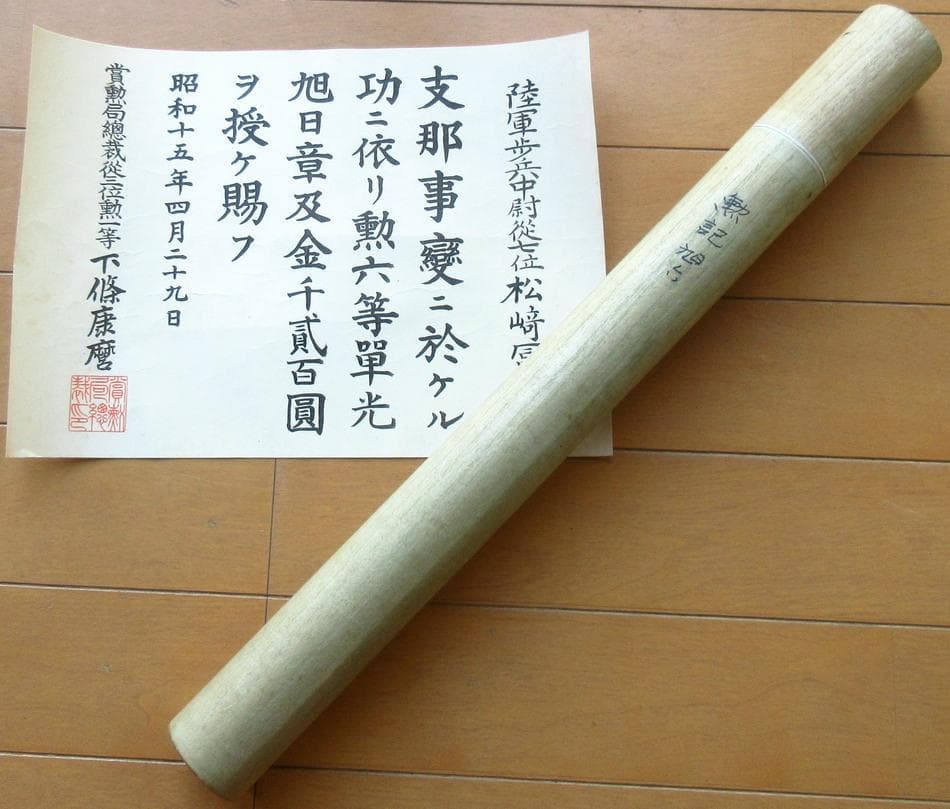 陸軍歩兵中尉從七位松﨑
支那事變ニ於ケル
功ニ依リ勲六等單光
旭日章及金千貳百圓
ヲ授ケ賜フ
昭和十五年四月二十九日
賞勲局總裁從三位勲一等下條康麿
賞勲
局總
裁印
勲記 旭六